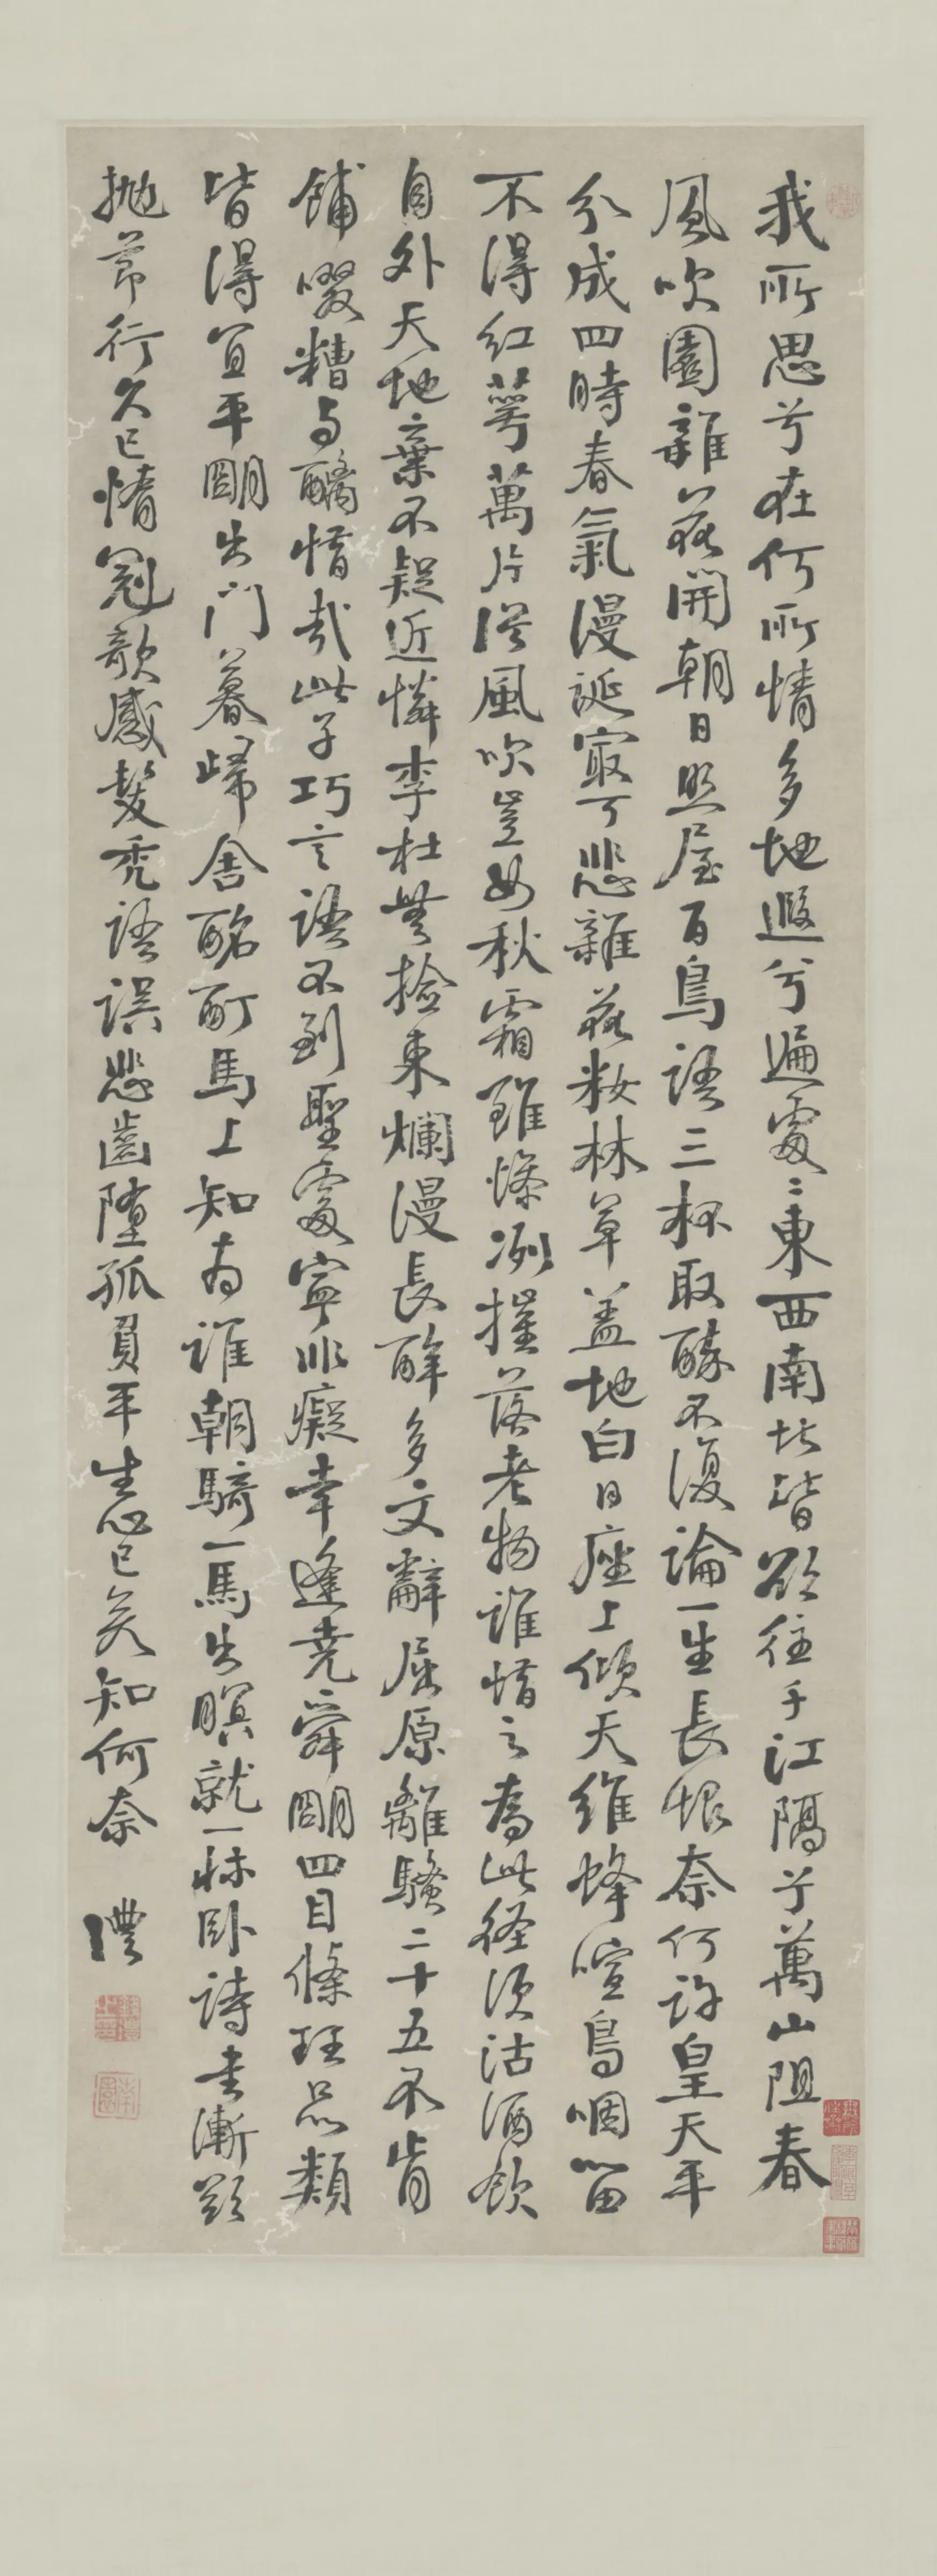 我所思兮在何所情多地遐兮遍處〻東西南北皆欲往千江隔兮萬山阻春
風吹園雜花開朝日照屋百鳥語三杯取醉不復論一生長恨奈何許皇天平
分成四時春氣漫誕最可悲雜花妝林草蓋地白日座上傾天維蜂喧鳥咽留
不得紅萼萬片從風吹豈如秋霜雖慘冽摧落老物誰惜之為此徑須沽酒飲
自外天地棄不疑近憐李杜無撿束爛漫長醉多文辭屈原離騷二十五不肯
餔啜糟与醨惜哉此子巧言語不到聖處寧非癡幸逢堯舜朙四目條理品類
皆得宜平朙出門暮歸舍酩酊馬上知為誰朝騎一馬出暝就一牀臥詩書漸欲
拋節行久已惰冠欹感髮禿語誤悲齒墮孤負平生心已矣知何奈 灃